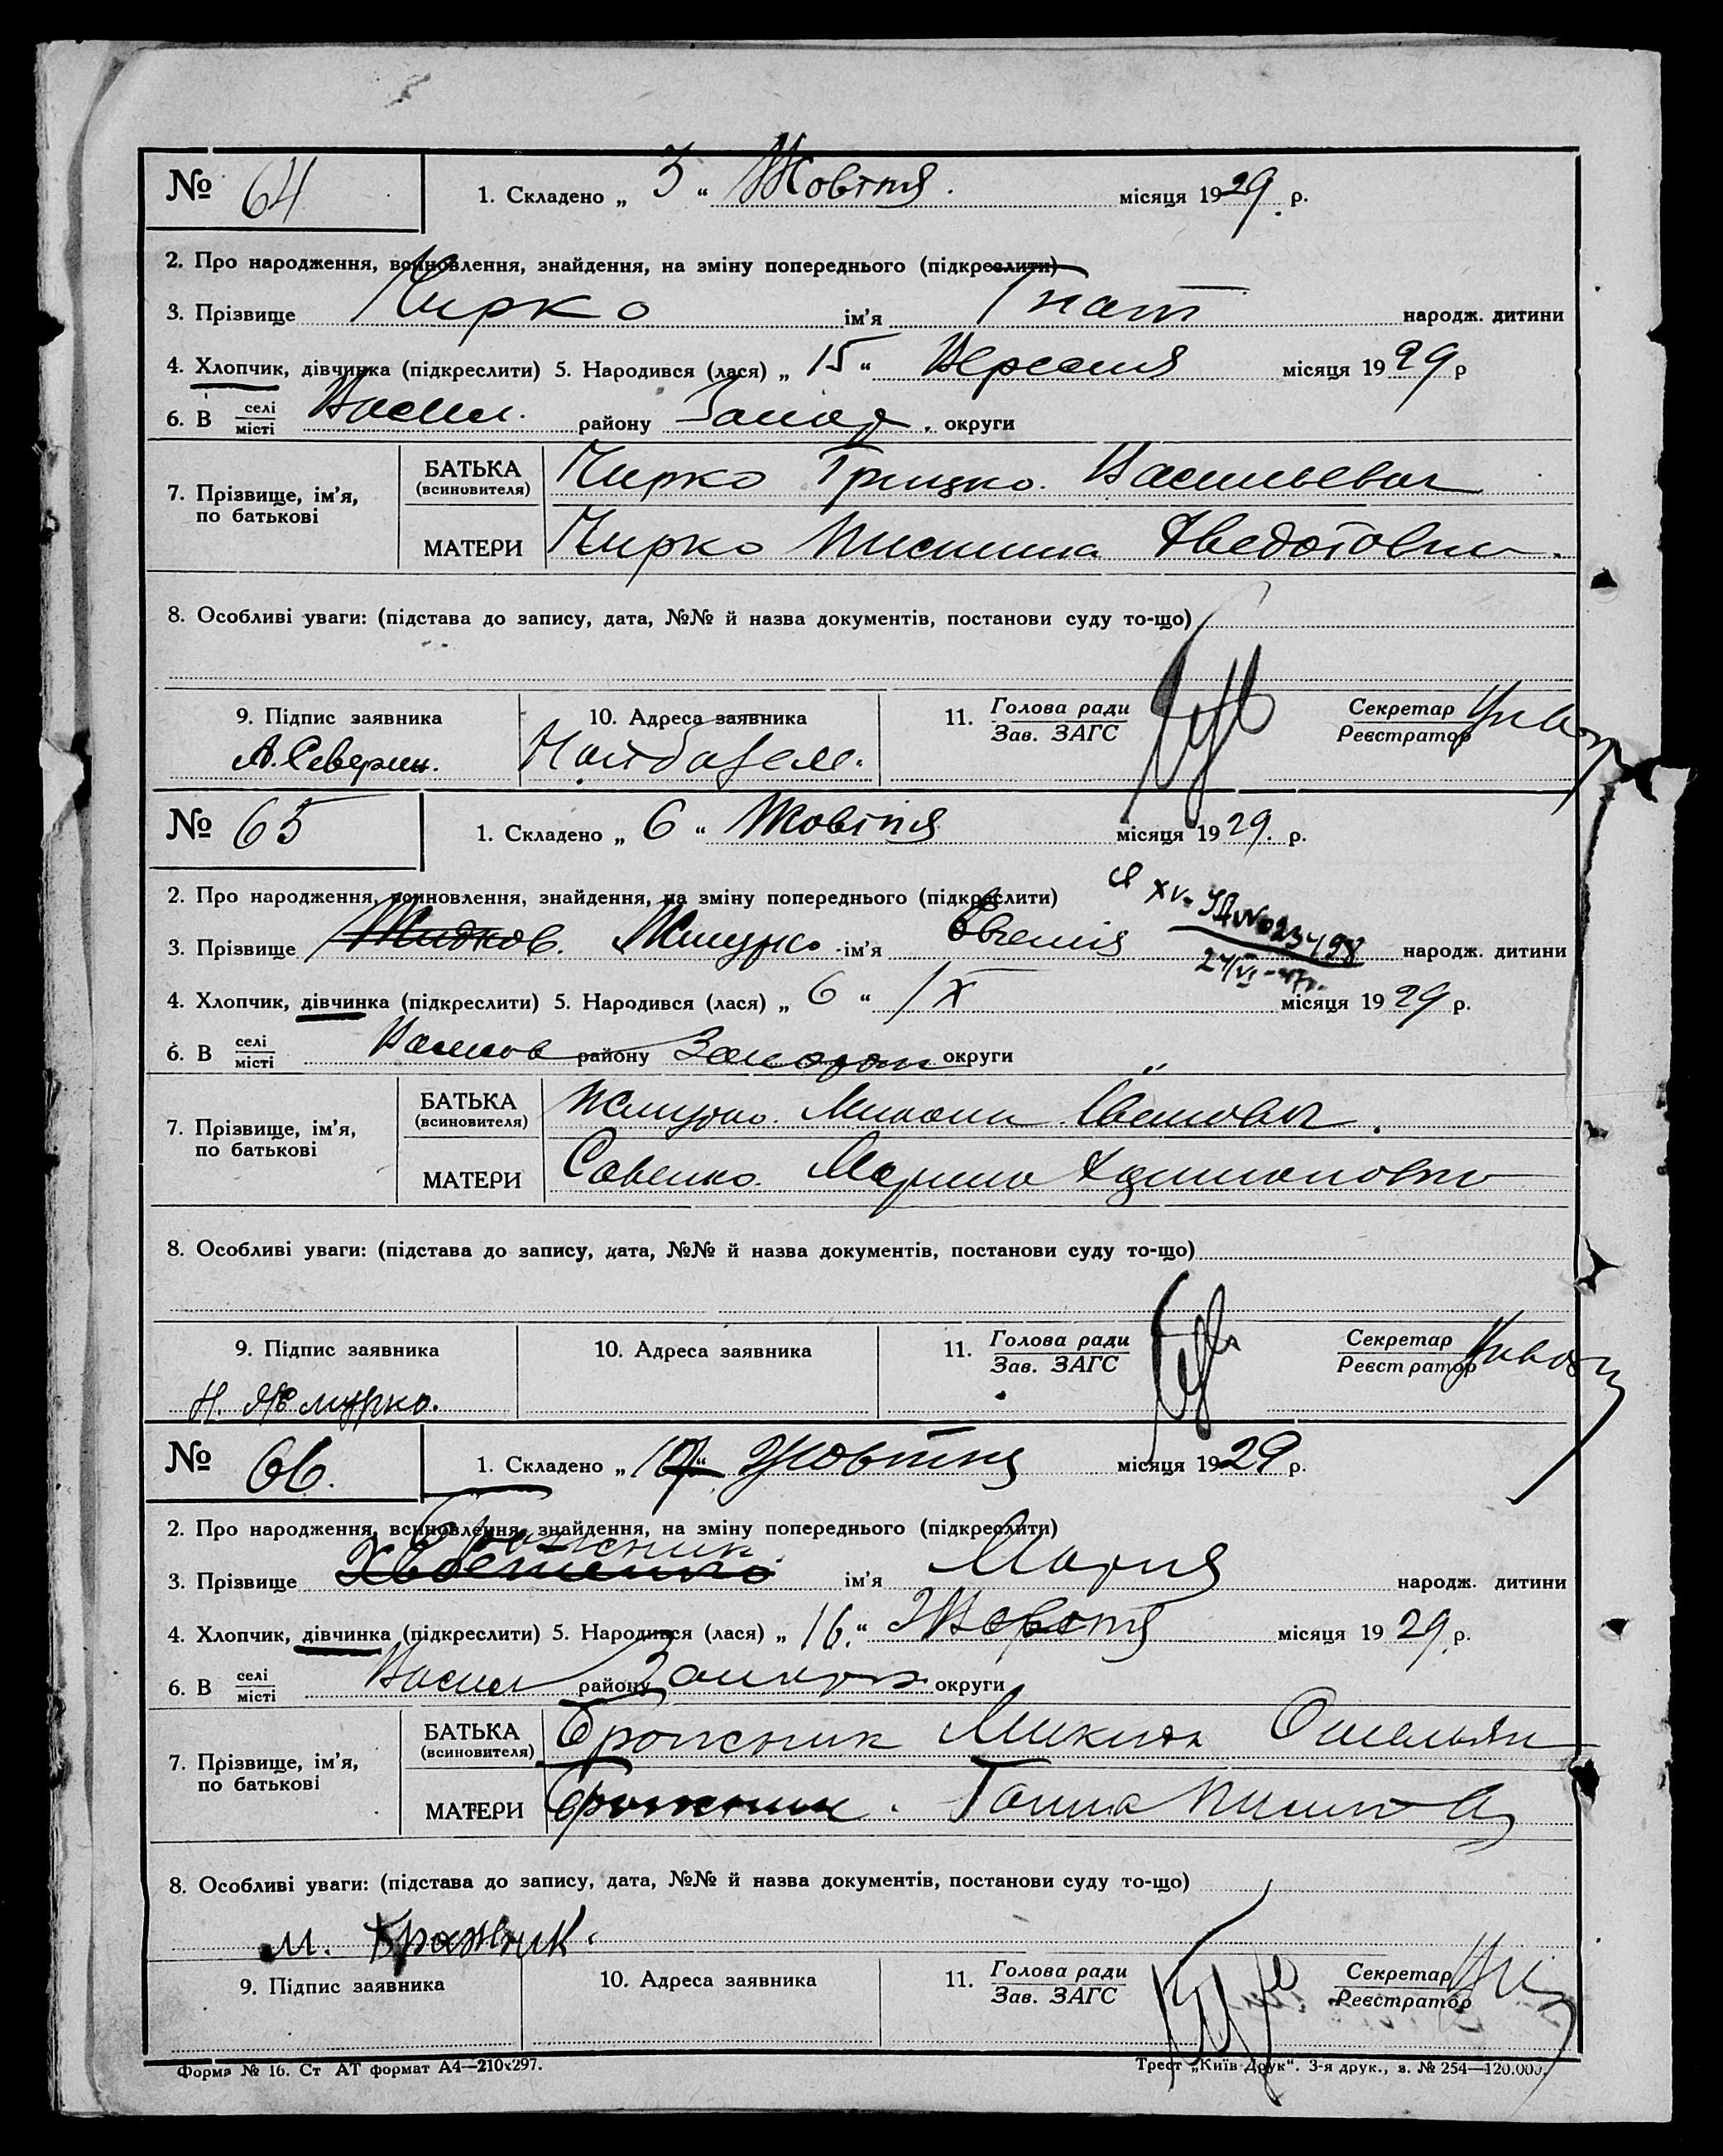 № 64 1. Складено „ 3 “ Жовтня місяця 1929 р.
2. Про народження, всиновлення, знайдення, на зміну попереднього (підкреслити)
3. Прізвище Чирко ім’я Гнат народж. дитини
4. Хлопчик, дівчинка (підкреслити) 5. Народився (лася) „ 15 “ Вересня місяця 1929 р
6. В селі/місті Васил. району Запор. округи
7. Прізвище, ім’я, по батькові
БАТЬКА (всиновителя) Чирко Грицко Васильевич
МАТЕРИ Чирко Аведотовна.
8. Особливі уваги: (підстава до запису, дата, №№ й назва документів, постанови суду то-що)
9. Підпис заявника 10. Адреса заявника 11. Голова ради/Зав. ЗАГС Секретар/Реєстратор
А. Северин.
№ 65 1. Складено „ 6 “ Жовтня місяця 1929. р.
2. Про народження, всиновлення, знайдення, на зміну попереднього (підкреслити)
3. Прізвище Жмурко ім’я Євгенія народж. дитини
4. Хлопчик, дівчинка (підкреслити) 5. Народився (лася) „ 6 “ /X місяця 1929 р.
6. В селі/місті Васильов району Запорож округи
7. Прізвище, ім’я, по батькові
БАТЬКА (всиновителя) Жмурко Микола
МАТЕРИ Савенко Марина
8. Особливі уваги: (підстава до запису, дата, №№ й назва документів, постанови суду то-що)
9. Підпис заявника 10. Адреса заявника 11. Голова ради/Зав. ЗАГС Секретар/Реєстратор
Н. Жмурко.
№ 66. 1. Складено „ 17 “ Жовтня місяця 1929 р.
2. Про народження, всиновлення, знайдення, на зміну попереднього (підкреслити)
Бражник
3. Прізвище ім’я Мария народж. дитини
4. Хлопчик, дівчинка (підкреслити) 5. Народився (лася) „ 16. “ Жовтня місяця 1929 р.
6. В селі/місті Васил району Запорож. округи
7. Прізвище, ім’я, по батькові
БАТЬКА (всиновителя) Бражник Микита Омельян
МАТЕРИ Бражник. Ганна
8. Особливі уваги: (підстава до запису, дата, №№ й назва документів, постанови суду то-що)
М. Бражник.
9. Підпис заявника 10. Адреса заявника 11. Голова ради/Зав. ЗАГС Секретар/Реєстратор
Форма № 16. Ст АТ формат А4—210х297. Трест „Київ-Друк“. 3-я друк., з. № 254—120.000.